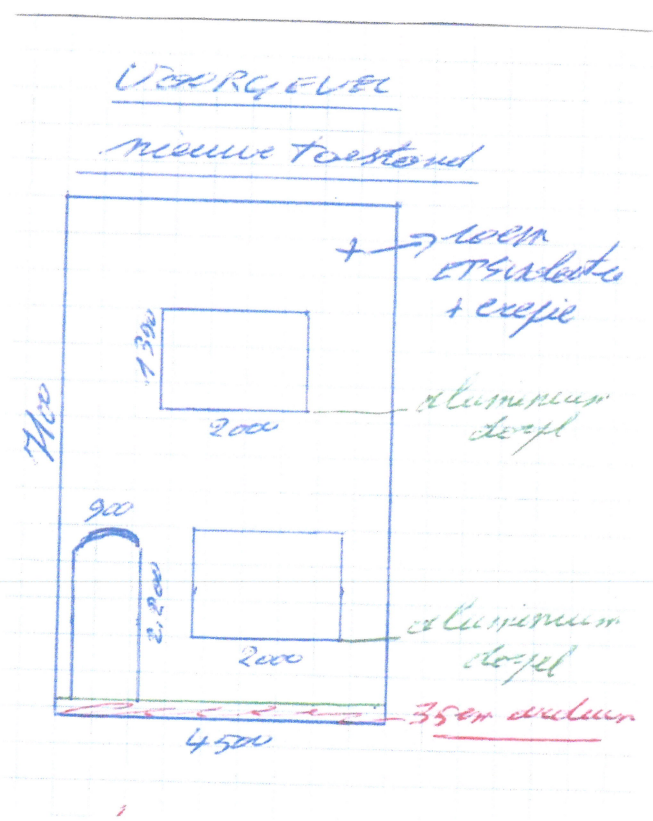 VOORGEVEL
nieuwe toestand
10cm
EPS isolatie
+ crepie
1300
2000
aluminium
dorpel
7100
900
2.200
2000
aluminium
dorpel
35cm
4500